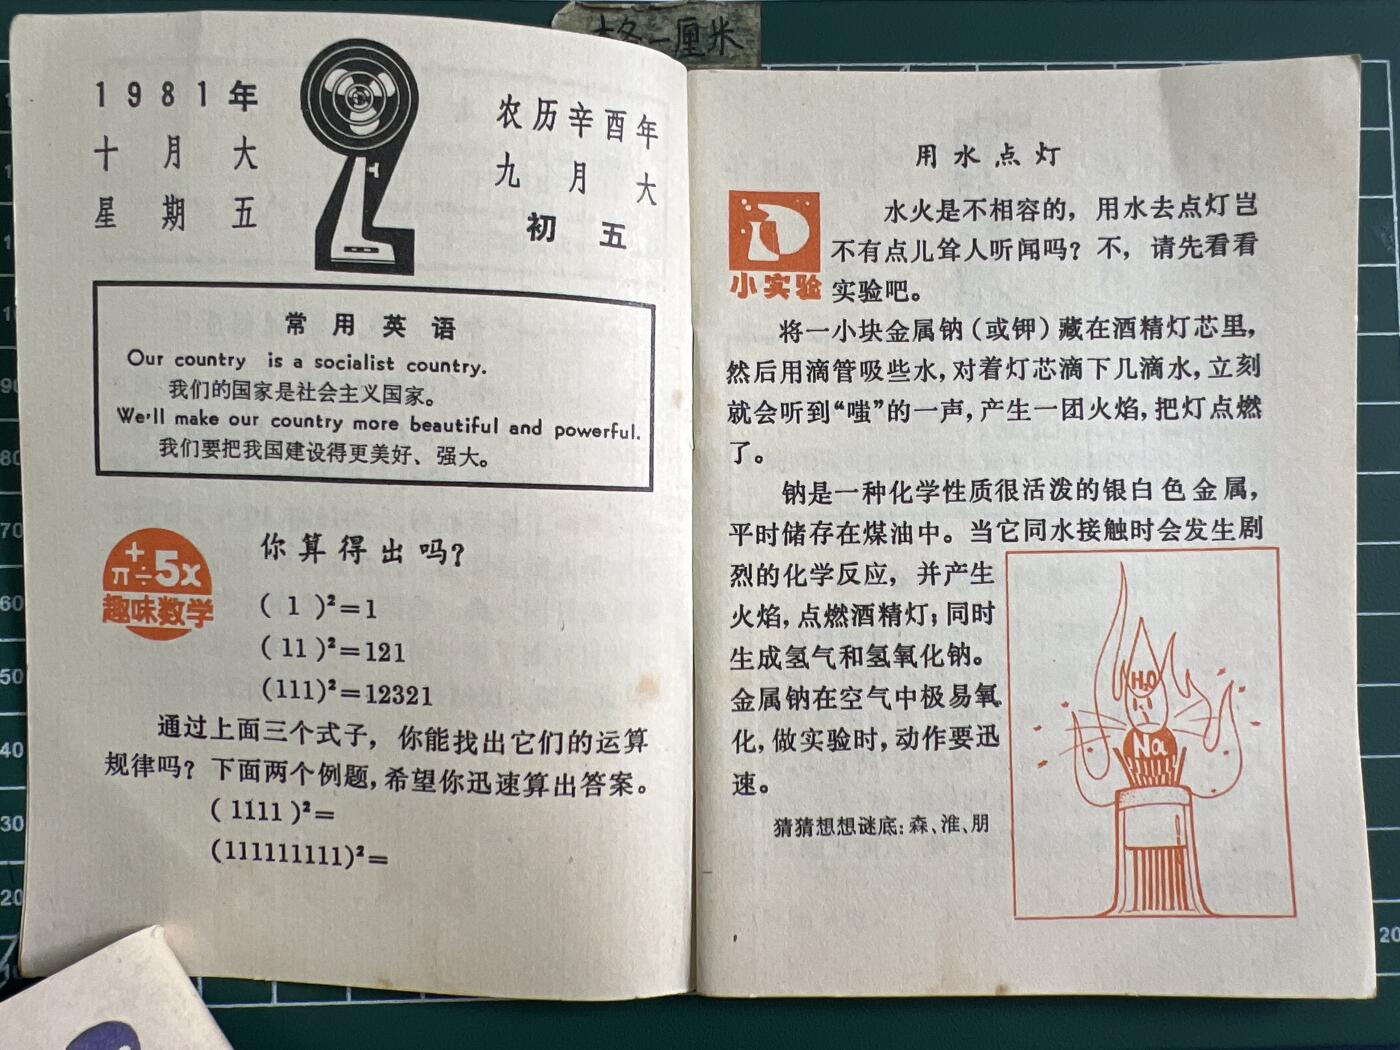 格一厘米
1981年
十月大
星期五
2
农历辛酉年
九月大
初五
常用英语
Our country is a socialist country.
我们的国家是社会主义国家。
We'll make our country more beautiful and powerful.
我们要把我国建设得更美好、强大。
+
π÷5x
趣味数学
你算得出吗?
( 1 )²=1
( 11 )²=121
(111)²=12321
通过上面三个式子,你能找出它们的运算
规律吗?下面两个例题,希望你迅速算出答案。
( 1111 )²=
(111111111)²=
90
80
70
60
50
40
30
20
10
用水点灯
小实验
水火是不相容的,用水去点灯岂
不有点儿耸人听闻吗?不,请先看看
实验吧。
将一小块金属钠(或钾)藏在酒精灯芯里,
然后用滴管吸些水,对着灯芯滴下几滴水,立刻
就会听到“嗤”的一声,产生一团火焰,把灯点燃
了。
钠是一种化学性质很活泼的银白色金属,
平时储存在煤油中。当它同水接触时会发生剧
烈的化学反应,并产生
火焰,点燃酒精灯;同时
生成氢气和氢氧化钠。
金属钠在空气中极易氧
化,做实验时,动作要迅
速。
猜猜想想谜底:森、淮、朋
H₂O
Na
20